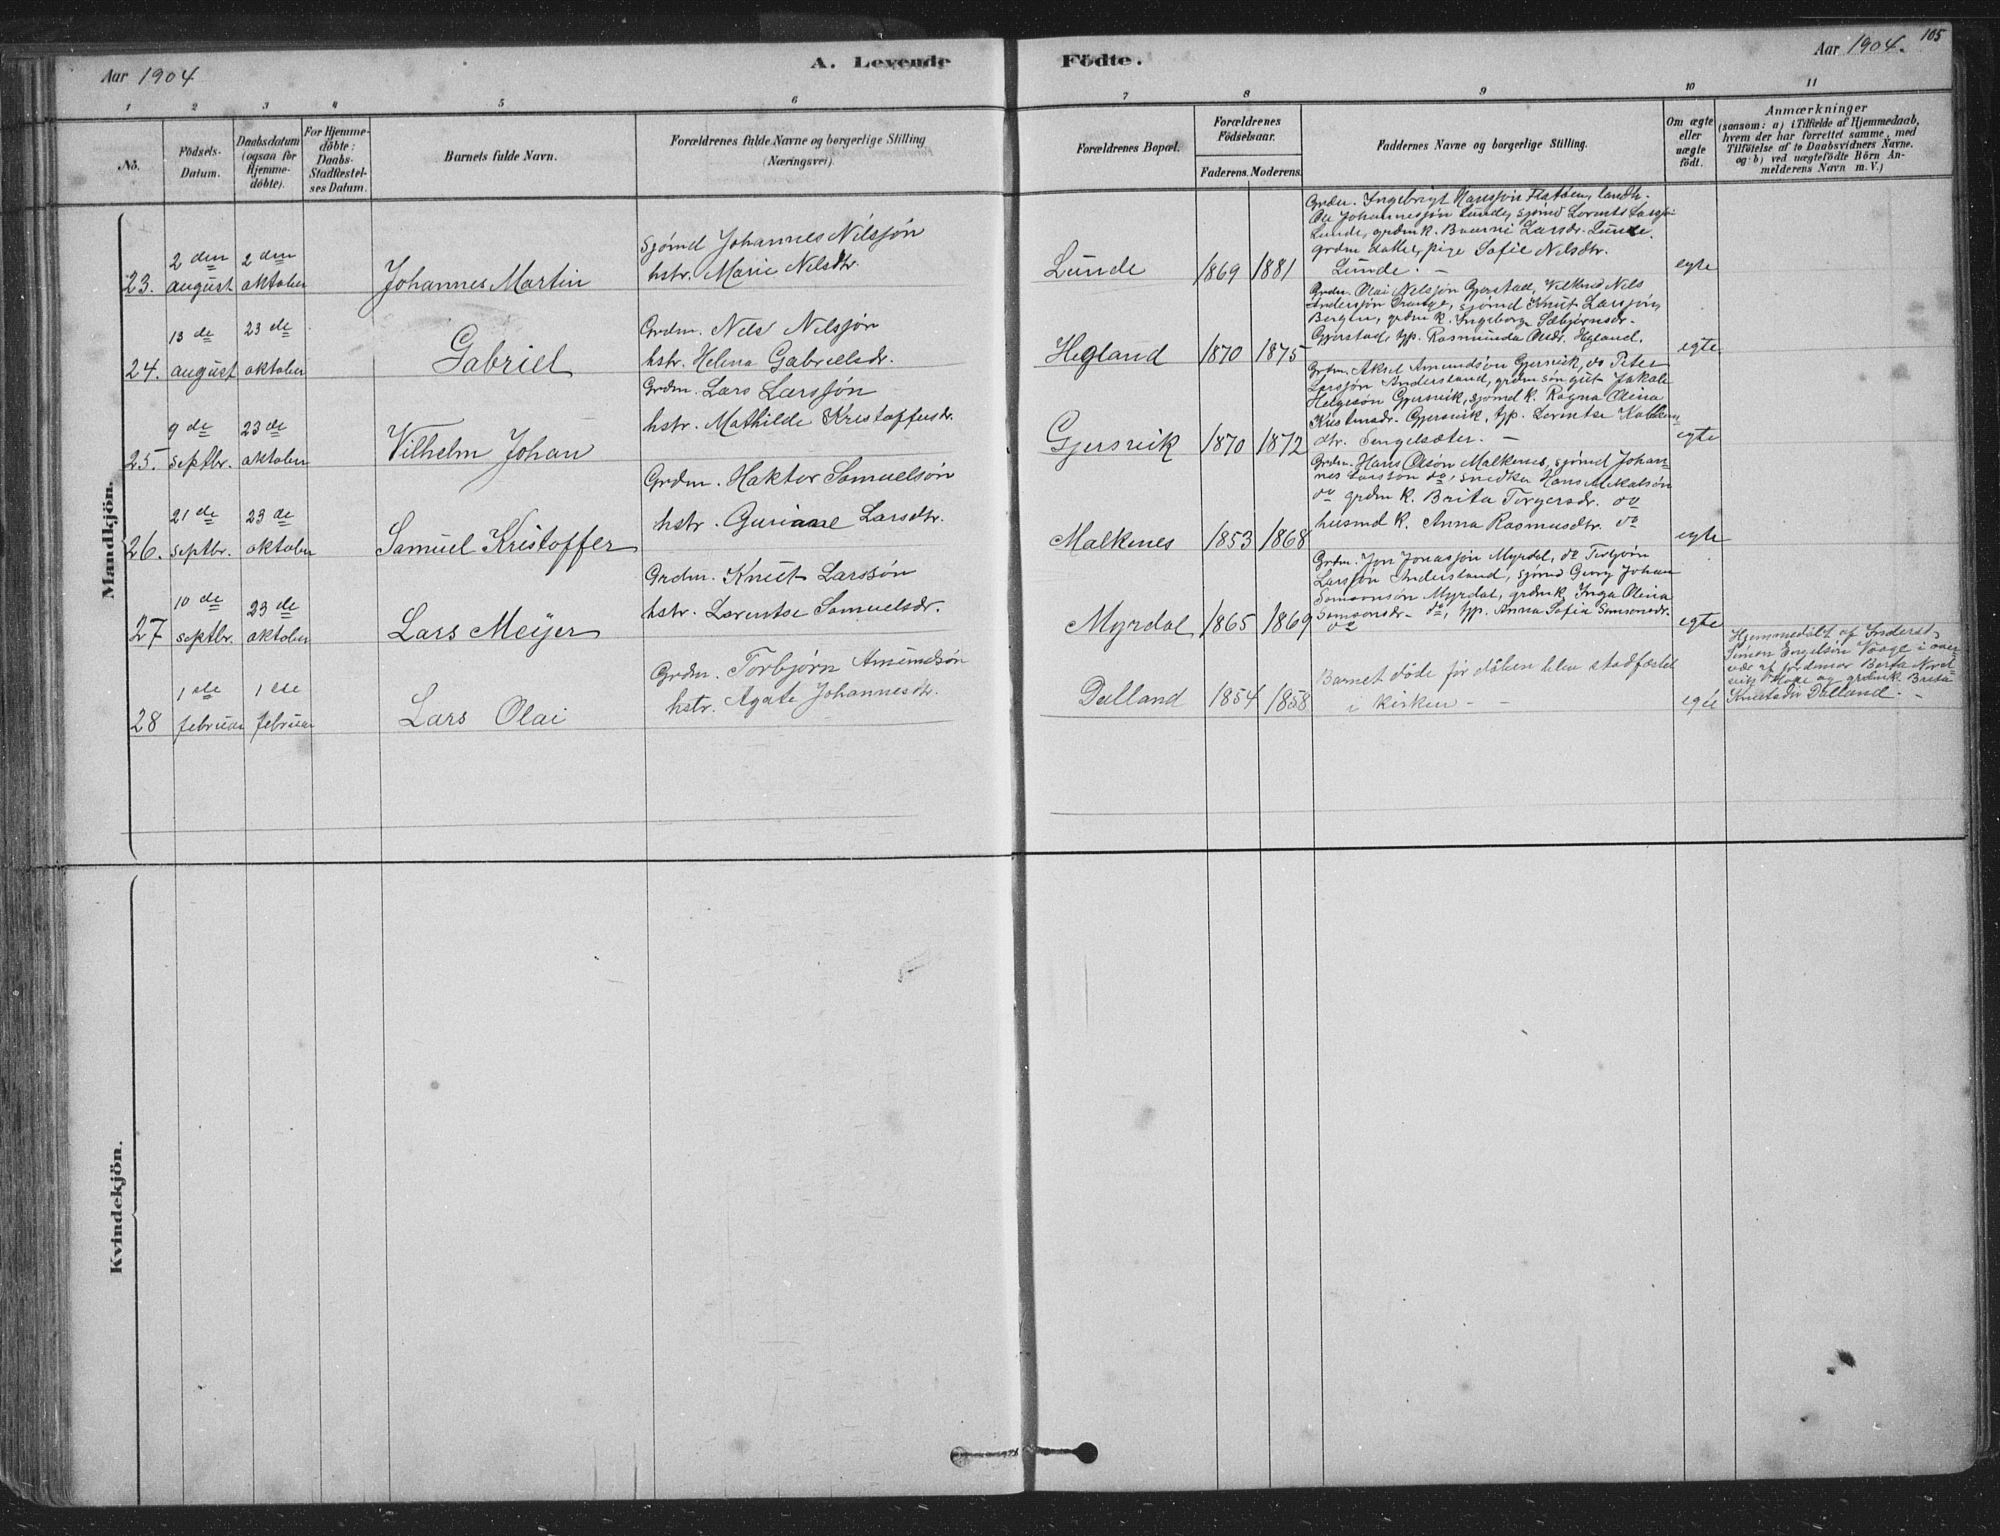 Aar 1904
A. Levende Födte.
Aar 1904.
105
1 2 3 4 5 6 7 8 9 10 11
No.
Födsels-Datum.
Daabsdatum (ogsaa for Hjemme-döbte).
For Hjemme-döbte: Daabs-Stadfæstel-ses Datum.
Barnets fulde Navn.
Forældrenes fulde Navne og borgerlige Stilling (Næringsvei).
Forældrenes Bopæl.
Forældrenes Födselsaar.
Faderens. Moderens.
Faddernes Navne og borgerlige Stilling.
Om ægte eller uægte födt.
Anmærkninger
(saasom: a) i Tilfælde af Hjemmedaab,
hvem der har forrettet samme, med
Tilföielse af to Daabsvidners Navne.
og b) ved uægtefödte Börn An-
melderens Navn m. V.)
Mandkjön.
23.
2 den august
2 den oktober
Johannes Martin
Sjømd Johannes Nilsjøn
hstr. Marie Nilsdtr.
Lunde
1869 1881
Grdm. Ingebrigt Hansjøn
Ole Johannesjøn Lunde, sjømd Lorents
Lunde, grdm k. Larsdr. Lunde.
grdm datter, pige Sofie Nilsdtr.
Lunde. –
egte
24.
13 de august
23 de oktober
Gabriel
Grdm. Nels Nilsjøn
hstr. Helena Gabrielsdr.
Hegland
1870 1875
Grdm. Olai Nelsjøn Gjerstad, Nils
Andersjøn sjømd Knut Larsjøn,
Bergen, grdm k. Ingeborg Sæbjørnsdr.
Gjerstad, tjp. Rasmunda Hegland.
egte
25.
9 de septbr.
23 de oktober
Vilhelm Johan
Grdm. Lars Larssjøn
hstr. Mathilde Kristoffersdr.
Gjersvik
1870 1872
Grdm. Aksel Amundsøn Gjersvik, do Peter
Larsjøn Anderstand, grdm søn gut Jakob
Helgesøn Gjersvik, sjømd k. Ragna Olina
Gjersvik, tjp. Lorentse
dtr. Sengelsæter. –
egte
26.
21 de septbr.
23 de oktober
Samuel Kristoffer
Grdm. Haktor Samuelsøn
hstr. Guriane Larsdtr.
Malkenes
1853 1868
Grdm. Hans Olsøn Malkenes, sjømd Johan-
nes Larsson do, snedker Hans
do grdm k. Brita Torgersdr. do
husmd k. Anna Rasmusdtr. do
egte
27
10 de septbr.
23 de oktober
Lars Meijer
Grdm. Knut Larssøn
hstr. Lorentse Samuelsdr.
Myrdal
1865 1869
Grdm. Jon Jonasjøn Myrdal, do Torbjørn
Larsjøn Anderstand, sjømd Georg Johan
Samsonsøn Myrdal, grdm k. Inga Olina
Samsonsdr. do, tjp. Anna Sofia Samsonsdr.
do
egte
28
1 ste februar
1 ste februar
Lars Olai
Grdm. Torbjørn Amundsøn
hstr. Agate Johannesdtr.
Dalland
1854 1858
Barnet døde før dåben blev stadfæstet
i kirken – –
egte
Hjemmedøbt af
Simon Engelsøn Vaage i over-
vær af jordemor Berta
Hope og grdm k. Brita
Knutsdtr Dalland. –
Kvindekjön.